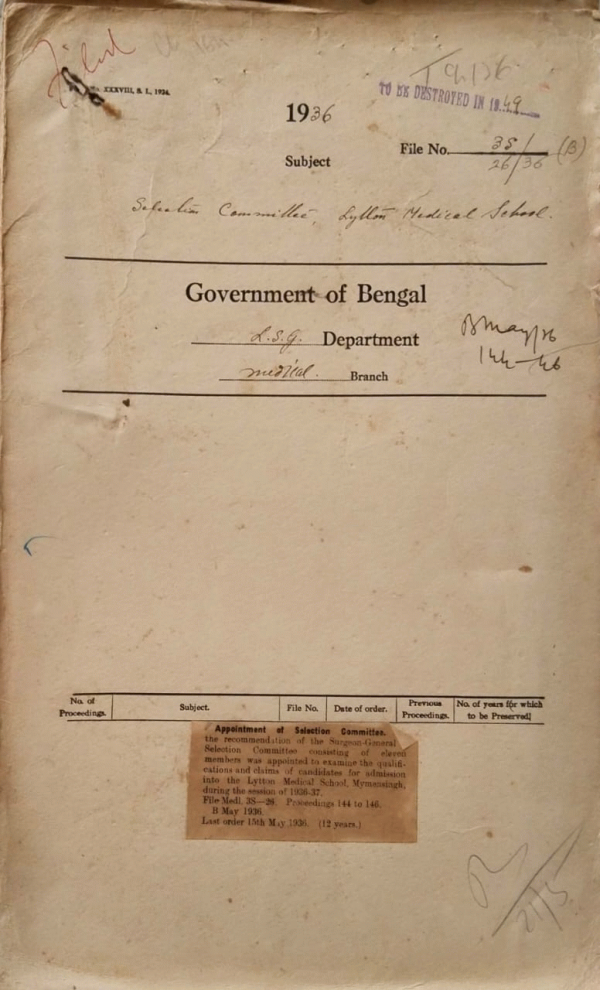 Filed
XXXVIII, S. I., 1936.
TO BE DESTROYED IN 1949
1936
File No. 3S/26/36 (B)
Subject
Selection Committee, Lytton Medical School.
Government of Bengal
L.S.G. Department
B May/36
144-46
Medical. Branch
No. of Proceedings. Subject. File No. Date of order. Previous Proceedings. No. of years for which to be Preserved
Appointment of Selection Committee.
the recommendation of the Surgeon-General
Selection Committee consisting of eleven
members was appointed to examine the qualifi-
cations and claims of candidates for admission
into the Lytton Medical School, Mymensingh,
during the session of 1936-37.
File Medl. 3S—26. Proceedings 144 to 146.
B May 1936.
Last order 15th May 1936. (12 years.)